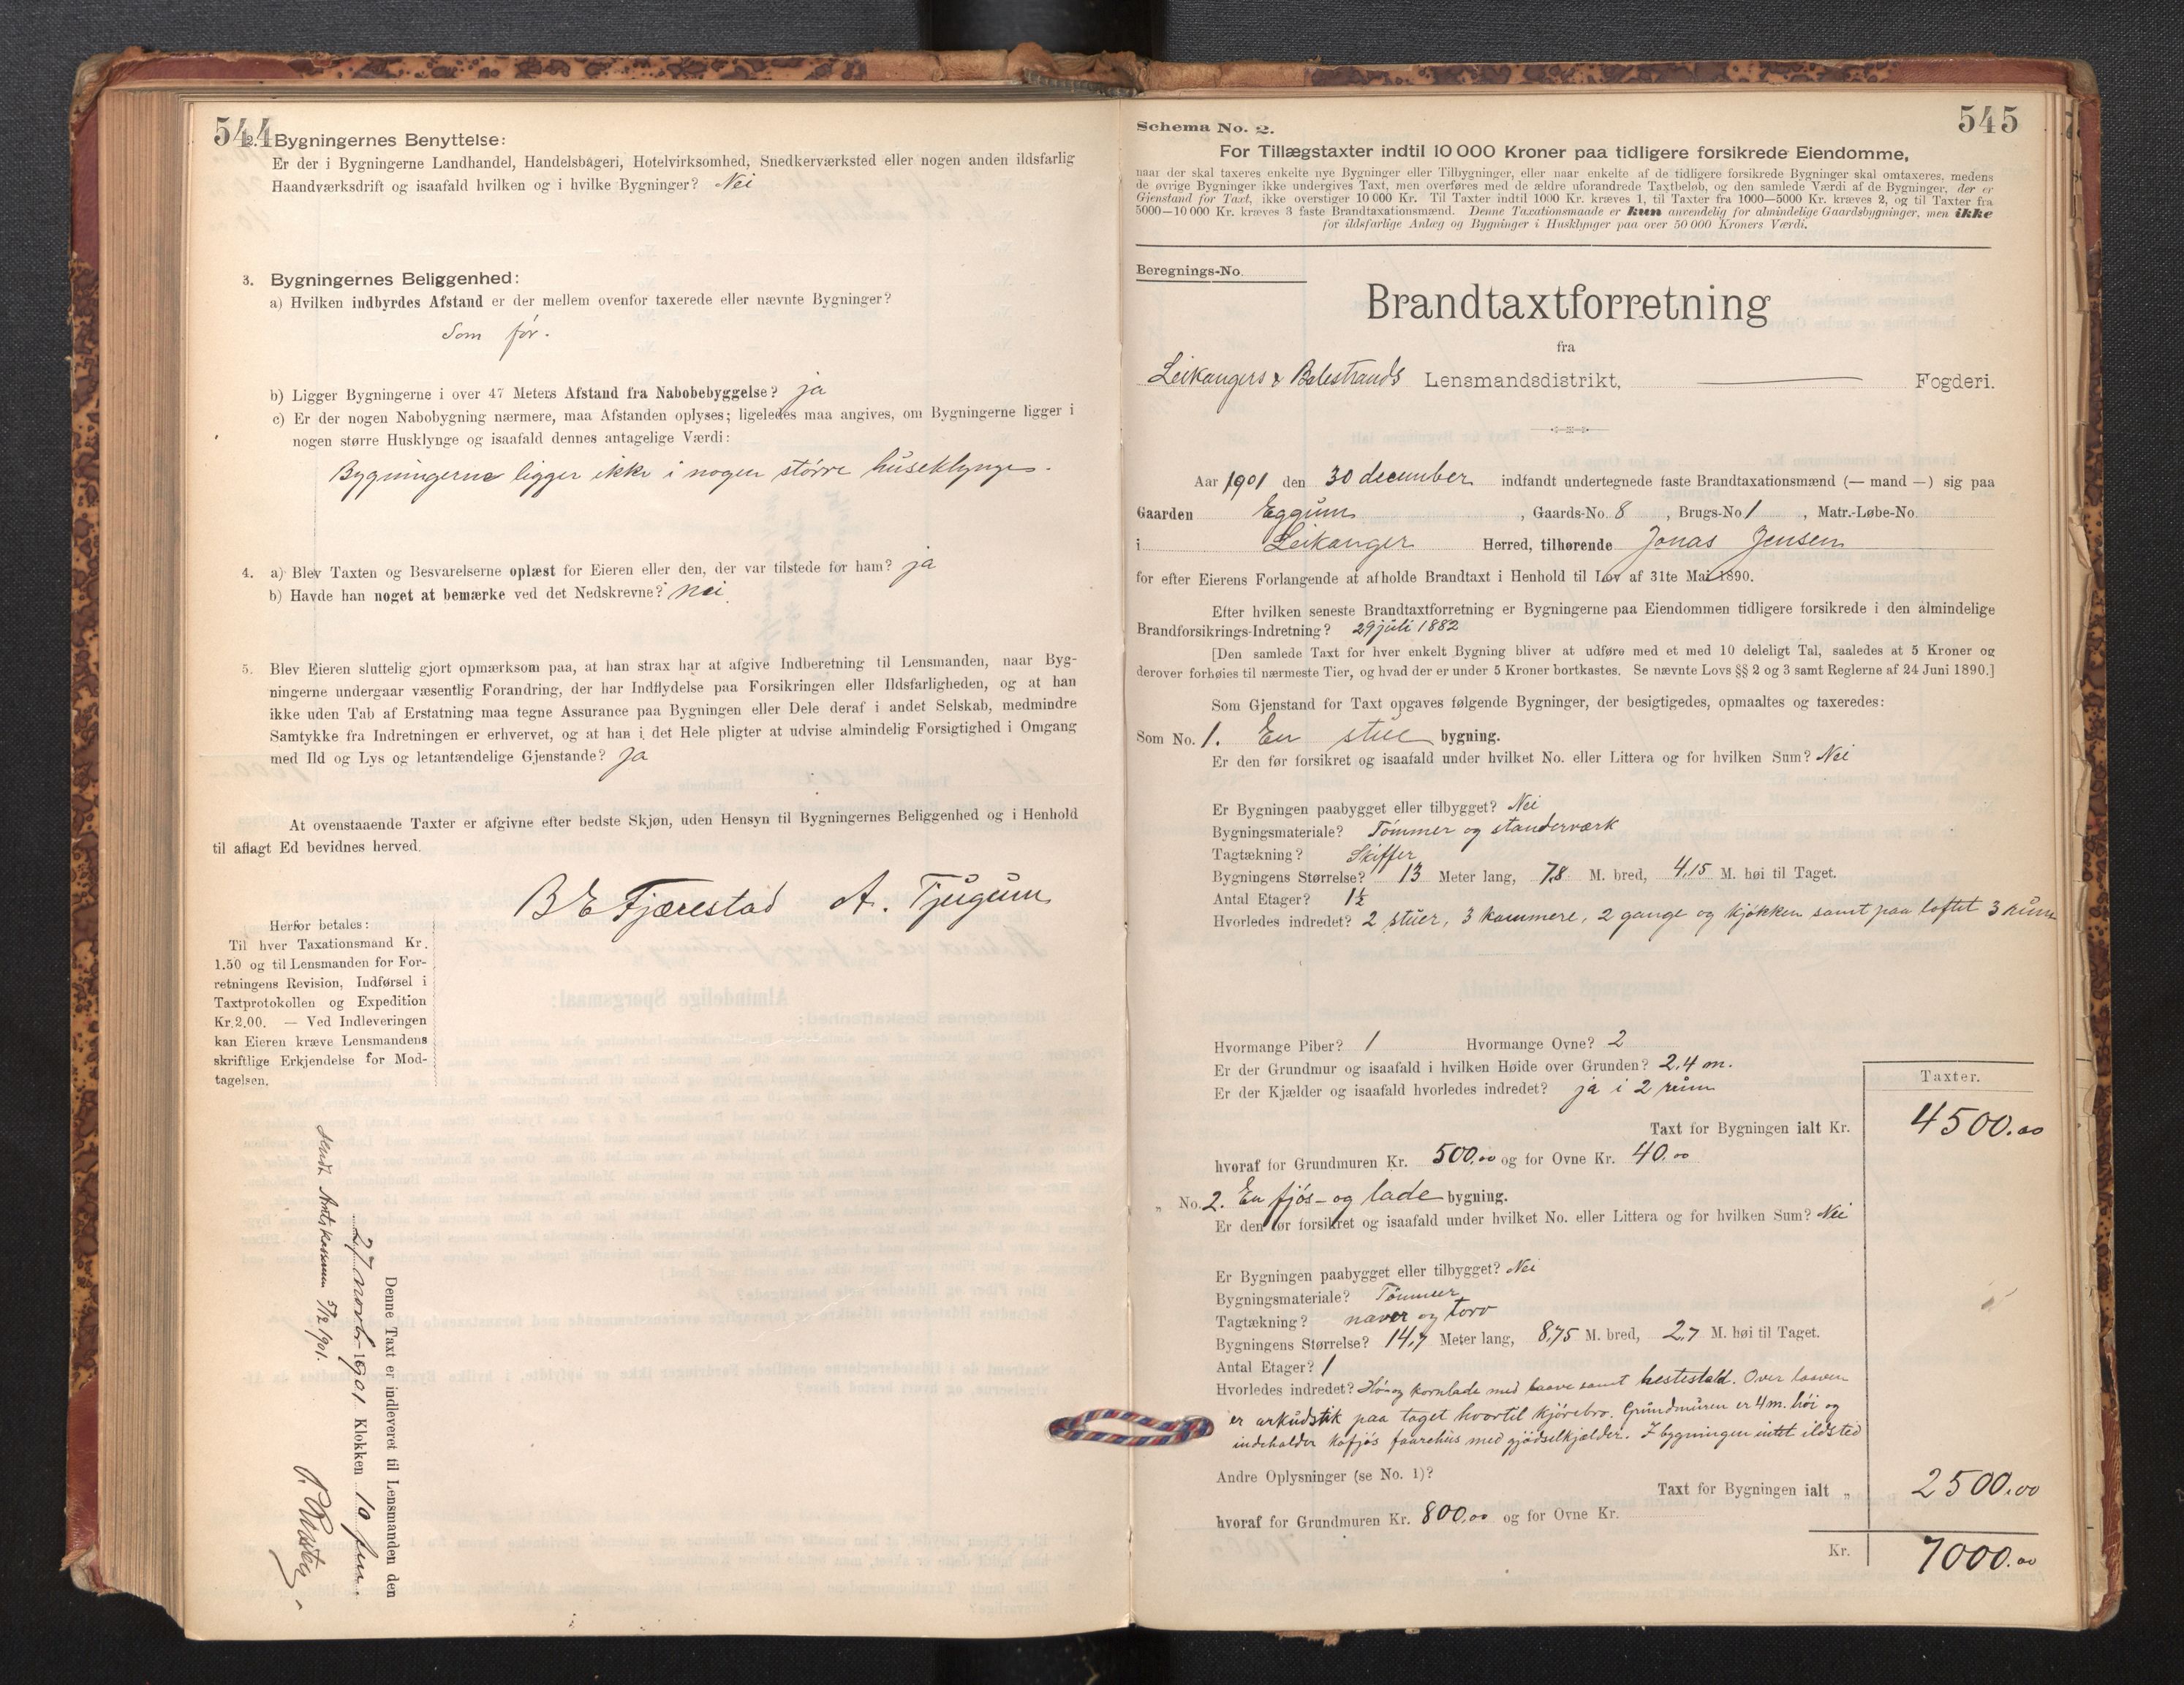 544
2. Bygningernes Benyttelse:
Er der i Bygningerne Landhandel, Handelsbageri, Hotelvirksomhed, Snedkerværksted eller nogen anden ildsfarlig
Haandværksdrift og isaafald hvilken og i hvilke Bygninger? Nei
3. Bygningernes Beliggenhed:
a) Hvilken indbyrdes Afstand er der mellem ovenfor taxerede eller nævnte Bygninger?
Som før.
b) Ligger Bygningerne i over 47 Meters Afstand fra Nabobebyggelse? ja
c) Er der nogen Nabobygning nærmere, maa Afstanden oplyses; ligeledes maa angives, om Bygningerne ligger i
nogen større Husklynge og isaafald dennes antagelige Værdi:
Bygningerne ligger ikke i nogen större huseklynge.
4. a) Blev Taxten og Besvarelserne oplæst for Eieren eller den, der var tilstede for ham? ja
b) Havde han noget at bemærke ved det Nedskrevne? nei
5. Blev Eieren sluttelig gjort opmærksom paa, at han strax har at afgive Indberetning til Lensmanden, naar Byg-
ningerne undergaar væsentlig Forandring, der har Indflydelse paa Forsikringen eller Ildsfarligheden, og at han
ikke uden Tab af Erstatning maa tegne Assurance paa Bygningen eller Dele deraf i andet Selskab, medmindre
Samtykke fra Indretningen er erhvervet, og at han i det Hele pligter at udvise almindelig Forsigtighed i Omgang
med Ild og Lys og letantændelige Gjenstande? Ja
At ovenstaaende Taxter er afgivne efter bedste Skjøn, uden Hensyn til Bygningernes Beliggenhed og i Henhold
til aflagt Ed bevidnes herved.
B E Fjærestad A. Tjugum
Herfor betales:
Til hver Taxationsmand Kr.
1.50 og til Lensmanden for For-
retningens Revision, Indførsel i
Taxtprotokollen og Expedition
Kr. 2.00. — Ved Indleveringen
kan Eieren kræve Lensmandens
skriftlige Erkjendelse for Mod-
tagelsen.
Denne Taxt er indleveret til Lensmanden den
27 novbr 1901 Klokken 10 fm.
Sendt Amtskassereren 5/12 1901.
545
Schema No. 2.
For Tillægstaxter indtil 10 000 Kroner paa tidligere forsikrede Eiendomme,
naar der skal taxeres enkelte nye Bygninger eller Tilbygninger, eller naar enkelte af de tidligere forsikrede Bygninger skal omtaxeres, medens
de øvrige Bygninger ikke undergives Taxt, men overføres med de ældre uforandrede Taxtbeløb, og den samlede Værdi af de Bygninger, der er
Gjenstand for Taxt, ikke overstiger 10 000 Kr. Til Taxter indtil 1000 Kr. kræves 1, til Taxter fra 1000—5000 Kr. kræves 2, og til Taxter fra
5000—10 000 Kr. kræves 3 faste Brandtaxationsmænd. Denne Taxationsmaade er kun anvendelig for almindelige Gaardsbygninger, men ikke
for ildsfarlige Anlæg og Bygninger i Husklynger paa over 50 000 Kroners Værdi.
Beregnings-No.
Brandtaxtforretning
fra
Leikangers & Balestrands Lensmandsdistrikt, Fogderi.
Aar 1901 den 30 december indfandt undertegnede faste Brandtaxationsmænd (— mand —) sig paa
Gaarden Eggum, Gaards-No. 8, Brugs-No 1, Matr.-Løbe-No.
i Leikanger Herred, tilhørende Jonas Jensen
for efter Eierens Forlangende at afholde Brandtaxt i Henhold til Lov af 31te Mai 1890.
Efter hvilken seneste Brandtaxtforretning er Bygningerne paa Eiendommen tidligere forsikrede i den almindelige
Brandforsikrings-Indretning? 29 juli 1882
[Den samlede Taxt for hver enkelt Bygning bliver at udføre med et med 10 deleligt Tal, saaledes at 5 Kroner og
derover forhøies til nærmeste Tier, og hvad der er under 5 Kroner bortkastes. Se nævnte Lovs §§ 2 og 3 samt Reglerne af 24 Juni 1890.]
Som Gjenstand for Taxt opgaves følgende Bygninger, der besigtigedes, opmaaltes og taxeredes:
Som No. 1. En stue bygning.
Er den før forsikret og isaafald under hvilket No. eller Littera og for hvilken Sum? Nei
Er Bygningen paabygget eller tilbygget? Nei
Bygningsmateriale? Tömmer og standerværk
Tagtækning? Skiffer
Bygningens Størrelse? 13 Meter lang, 7,8 M. bred, 4,15 M. høi til Taget.
Antal Etager? 1½
Hvorledes indredet? 2 stuer, 3 kammere, 2 gange og kjøkken samt paa loftet 3 rum
Hvormange Piber? 1 Hvormange Ovne? 2
Er der Grundmur og isaafald i hvilken Høide over Grunden? 2,4 m.
Er der Kjælder og isaafald hvorledes indredet? ja i 2 rum
Taxter.
Taxt for Bygningen ialt Kr. 4500.00
hvoraf for Grundmuren Kr. 500,00 og for Ovne Kr. 40.00
„ No. 2. En fjös- og lade bygning.
Er den før forsikret og isaafald under hvilket No. eller Littera og for hvilken Sum? Nei
Er Bygningen paabygget eller tilbygget? Nei
Bygningsmateriale? Tömmer
Tagtækning? næver og torv
Bygningens Størrelse? 14,7 Meter lang, 8,75 M. bred, 2,7 M. høi til Taget.
Antal Etager? 1
Hvorledes indredet? Hö- og kornlade med laave samt hestestald. Over laaven
er arkudstik paa taget hvortil kjörebro. Grundmuren er 4 m. höi og
indeholder kofjös faarehus med gjödselkjælder. I bygningen intet ildsted
Andre Oplysninger (se No. 1)?
Taxt for Bygningen ialt „ 2500.00
hvoraf for Grundmuren Kr. 800,00 og for Ovne Kr.
Kr. 7000.00